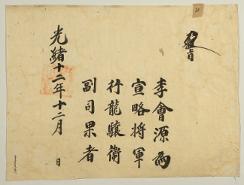 敎旨
李會源爲
宣略將軍
行龍驤衛
副司果者
光緖十二年十二月 日